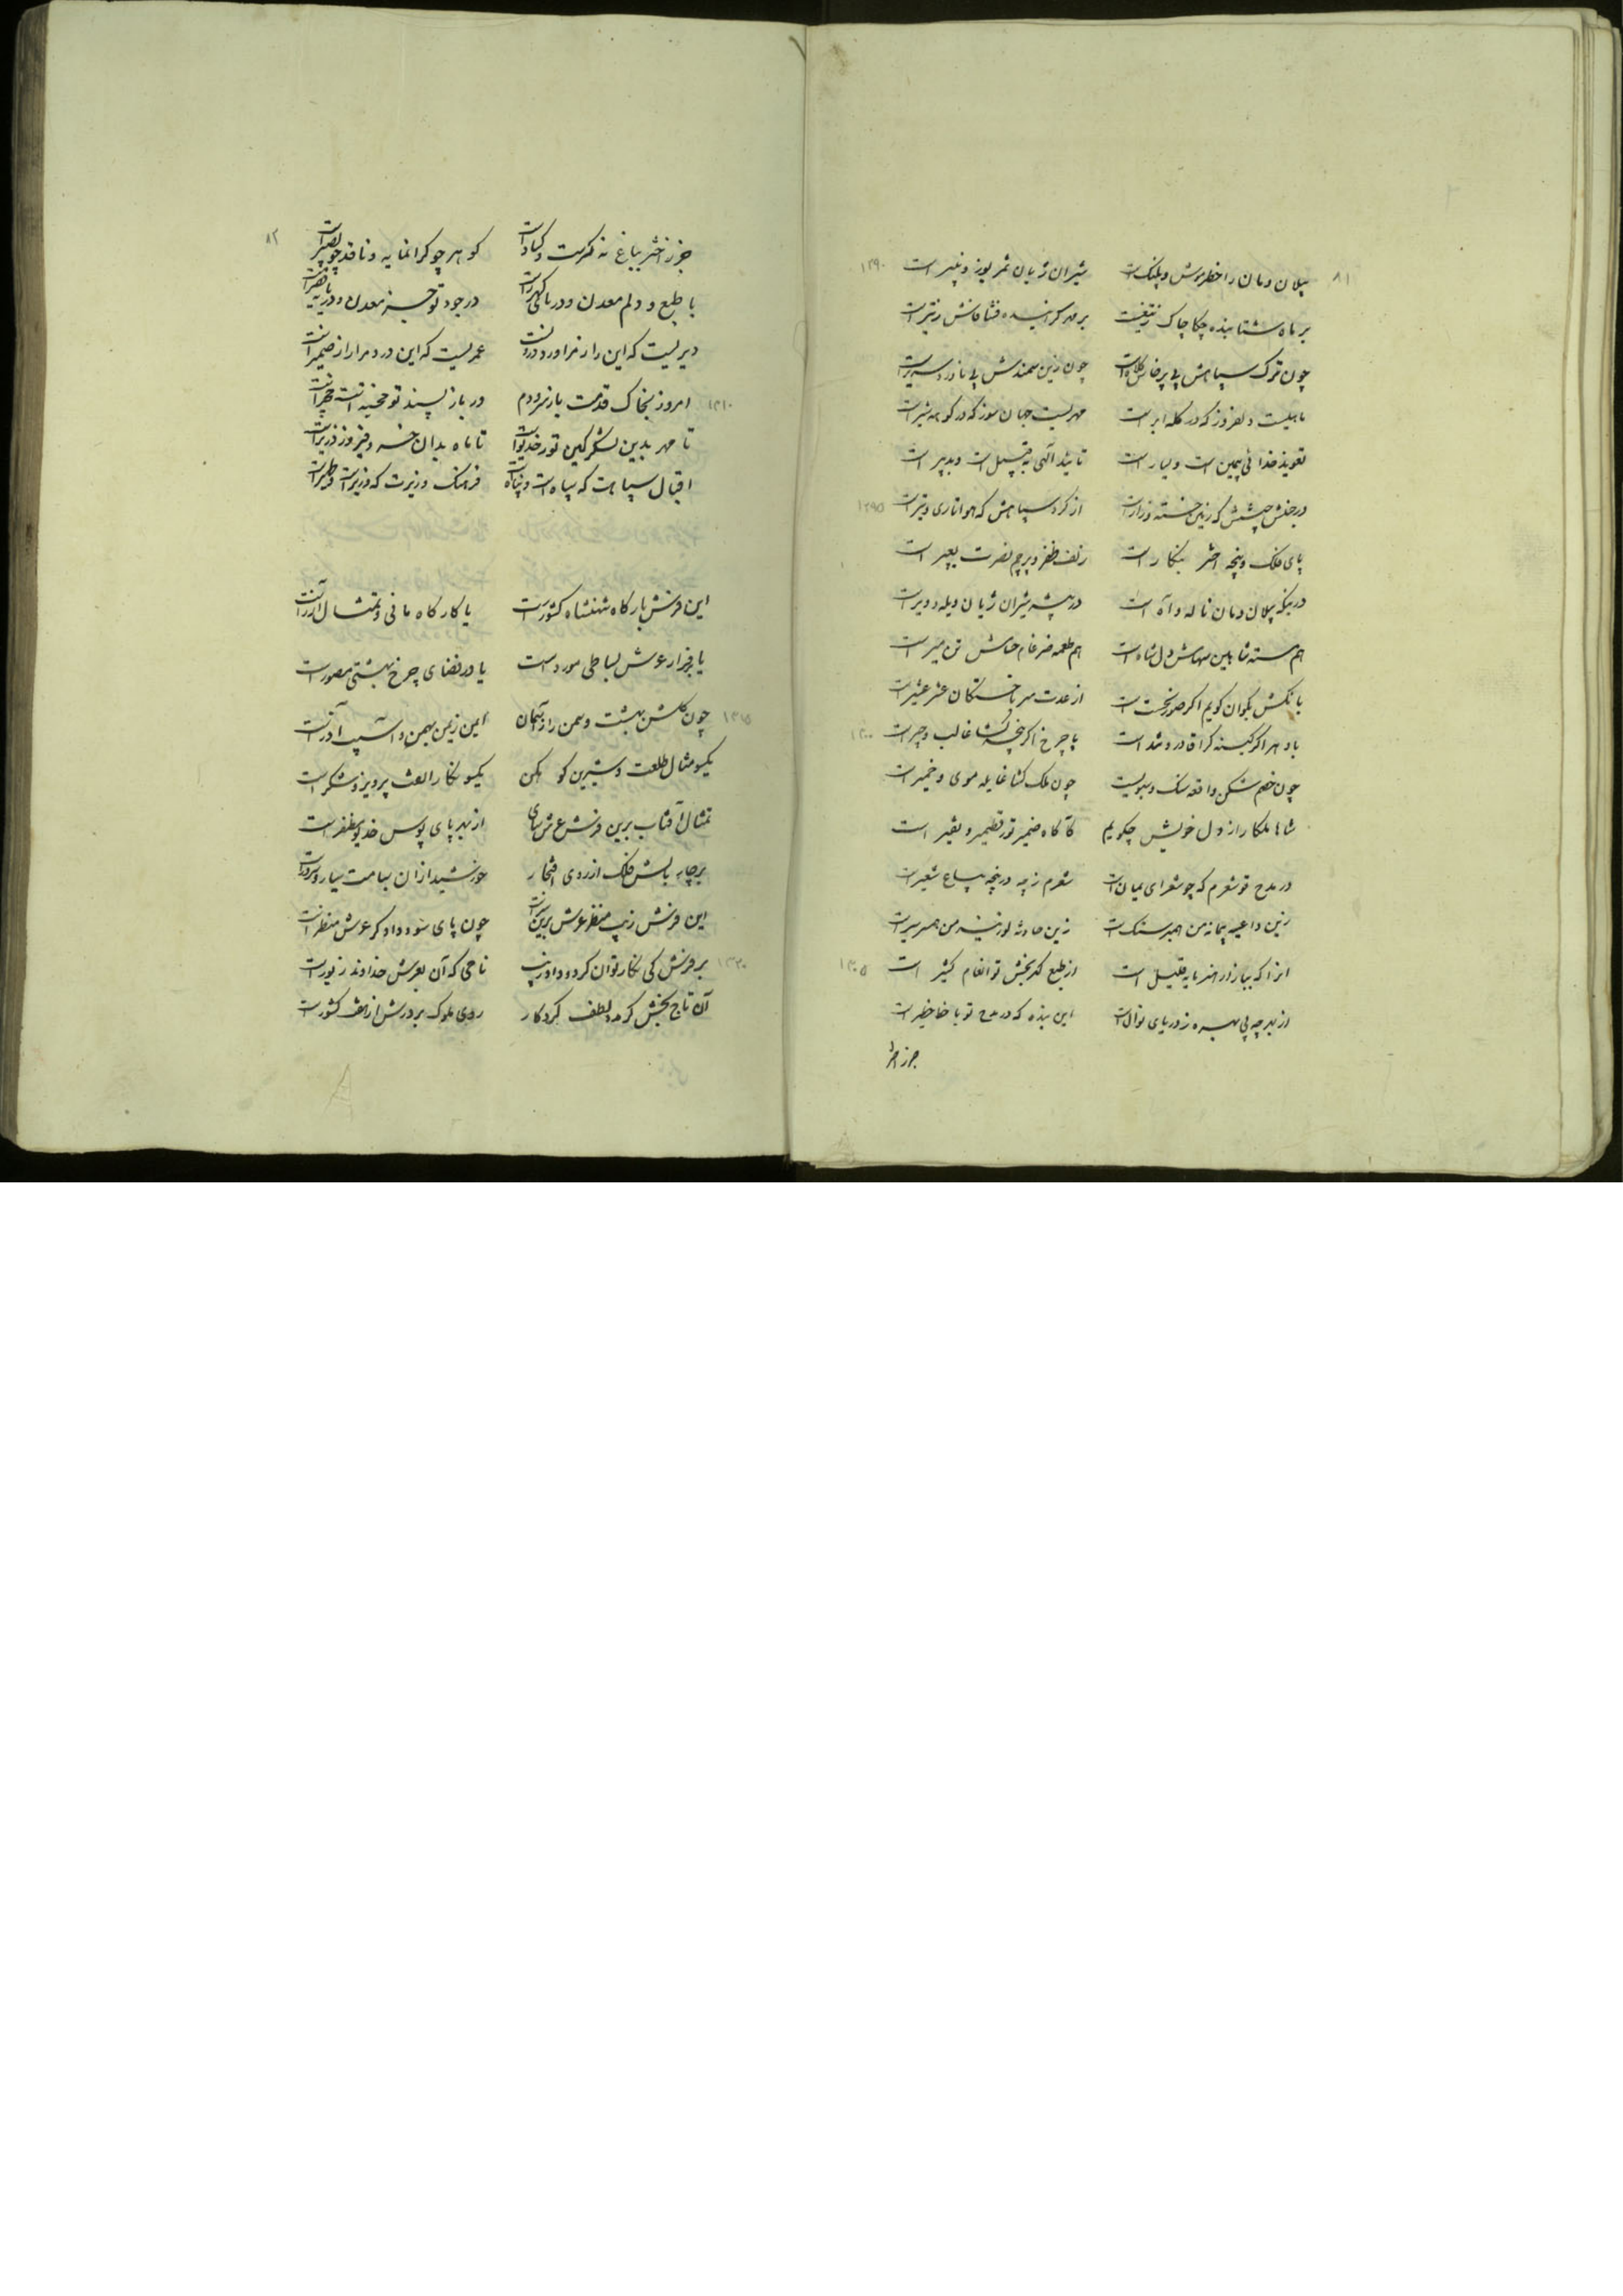 ۸۱
پیلان دمان را خطر موش و پلنگ است شیران ژیان ثمر یوز و پنیر است ۱۲۹۰
بر ماه شتابنده چکاچاک ز تیغست بر مهر گراینده فشافاش ز تیر است
چون ترک سپاهش پی پرخاش کلاه است چون زین سمندش پی ناورد سریر است
ماهیست دلفروز که در کله ابر است مهریست جهان سوز که در کوهه شیر است
تعویذ خدائی یمین است و یسار است تائید آلهی به قبیل است و دبیر است
در جنبش جیشش که زمین خسته و زار است از گرد سپاهش که هوا تاری و تیر است ۱۲۹۵
پای فلک و پنجه اختر بنگار است زلف ظفر و پرچم نصرت بعبیر است
در بنگه پیلان دمان ناله و آه است در بیشه شیران ژیان ویله و ویر است
هم مسته شاهین سهامش دل شاه است هم طعمه ضرغام حسامش تن میر است
با نکش بگوان گویم اگر صور نخست است از عدت سرباختگان عشر عشیر است
با دهر اگر کینه گرا قادر و شد است با چرخ اگر پنجه گشا غالب و چیر است ۱۳۰۰
چون خصم شکن واقعه سنگ و سبویست چون ملک گشا غایله موی و خمیر است
شاها ملکا راز دل خویش چگویم کآگاه ضمیر تو ز قطمیر و نقیر است
در مدح تو شعرم که چو شعرای یمان است شعرم ز چه در پنجه سباع شعیر است
زین داعیه پیمانه من همبر سنگ است زین حادثه لوزینه من همسر سیر است
انرا که ببازار هنر مایه قلیل است از طبع گهربخش تو انعام کثیر است ۱۳۰۵
از بهر چه بی بهره ز دریای نوال است این بنده که در مدح تو با خاطر است
جز زاختر
۸۲
جز زاختر بباغ نه گرمست و کساد است گوهر چو گرانمایه و ناقد چو بصیر است
با طبع و دلم معدن و دریا گهر است در جود تو جز معدن و دریا نه نضیر است
دیریست که این راز مرا ورد درونست عمریست که این درد مرا راز ضمیر است
۱۳۱۰ امروز بخاک قدمت باز نمودم در باز پسند تو مخیر است
تا مهر بدین لشکر کین تور خدیو است تا ماه بدان خسرو فیروز وزیر است
اقبال سپاهت که سپاه است و پناه فرهنگ وزیرت که وزیر است و ظهیر است
این فرش بارگاه شهنشاه کشور است یا کارگاه مانی و تمثال آزر است
یا بر فراز عرش بساطی مورد است یا در فضای چرخ بهشتی مصور است
۱۳۱۵ چون گلشن بهشت و سمن زار آسمان ایمن زمین بهمن و آسیب آذر است
یکسو مثال طلعت و شیرین کوهکن یکسو نگار العت پرویز و شکر است
تمثال آفتاب برین فرش عرش سای از بهر پای بوس خدیو مظفر است
بر چار بالش فلک از روی افتخار خورشید ازان بسامت سیار و سرور است
این فرش زیب منظر عرش برین است چون پای سود داد گر عرش منظر است
۱۳۲۰ بر فرش کی نگار توان کرد داورنک تاجی که آن بعرش خداوند زیور است
آن تاج بخش کز مدد لطف کردگار روی ملوک بر درش از هفت کشور است